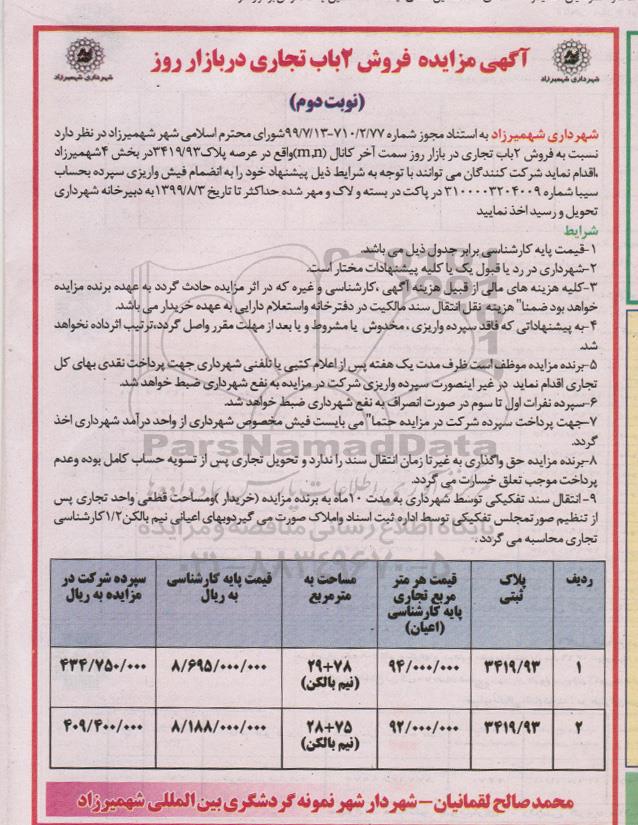 آگهی مزایده فروش ۲باب تجاری دربازار روز
شهرداری شهمیرزاد
شهرداری شهمیرزاد
(نوبت دوم)
شهرداری شهمیرزاد به استناد مجوز شماره ۷۱۰/۲/۷۷-۹۹/۷/۱۳شورای محترم اسلامی شهر شهمیرزاد در نظر دارد
نسبت به فروش ۲باب تجاری در بازار روز سمت آخر کانال (m,n)واقع در عرصه پلاک۳۴۱۹/۹۳در بخش ۴شهمیرزاد
،اقدام نماید شرکت کنندگان می توانند با توجه به شرایط ذیل پیشنهاد خود را به انضمام فیش واریزی سپرده بحساب
سیبا شماره ۳۱۰۰۰۰۳۲۰۴۰۰۹ در پاکت در بسته و لاک و مهر شده حداکثر تا تاریخ ۱۳۹۹/۸/۳به دبیرخانه شهرداری
تحویل و رسید اخذ نمایید
شرایط
۱-قیمت پایه کارشناسی برابر جدول ذیل می باشد.
۲-شهرداری در رد یا قبول یک یا کلیه پیشنهادات مختار است.
۳-کلیه هزینه های مالی از قبیل هزینه آگهی ،کارشناسی و غیره که در اثر مزایده حادث گردد به عهده برنده مزایده
خواهد بود ضمنا" هزینه نقل انتقال سند مالکیت در دفترخانه واستعلام دارایی به عهده خریدار می باشد.
۴-به پیشنهاداتی که فاقد سپرده واریزی ، مخدوش یا مشروط و یا بعد از مهلت مقرر واصل گردد،ترتیب اثرداده نخواهد
شد.
۵-برنده مزایده موظف است ظرف مدت یک هفته پس از اعلام کتبی یا تلفنی شهرداری جهت پرداخت نقدی بهای کل
تجاری اقدام نماید در غیر اینصورت سپرده واریزی شرکت در مزایده به نفع شهرداری ضبط خواهد شد.
۶-سپرده نفرات اول تا سوم در صورت انصراف به نفع شهرداری ضبط خواهد شد.
۷-جهت پرداخت سپرده شرکت در مزایده حتما" می بایست فیش مخصوص شهرداری از واحد درآمد شهرداری اخذ
گردد.
۸-برنده مزایده حق واگذاری به غیر تا زمان انتقال سند را ندارد و تحویل تجاری پس از تسویه حساب کامل بوده وعدم
پرداخت موجب تعلق خسارت می گردد.
۹-انتقال سند تفکیکی توسط شهرداری به مدت ۱۰ماه به برنده مزایده (خریدار )ومساحت قطعی واحد تجاری پس
از تنظیم صورتمجلس تفکیکی توسط اداره ثبت اسناد واملاک صورت می گیردوبهای اعیانی نیم بالکن۱/۲کارشناسی
تجاری محاسبه می گردد.
ردیف پلاک ثبتی قیمت هر متر مربع تجاری پایه کارشناسی (اعیان) مساحت به مترمربع قیمت پایه کارشناسی به ریال سپرده شرکت در مزایده به ریال
۱ ۳۴۱۹/۹۳ ۹۴/۰۰۰/۰۰۰ ۲۹+۷۸ (نیم بالکن) ۸/۶۹۵/۰۰۰/۰۰۰ ۴۳۴/۷۵۰/۰۰۰
۲ ۳۴۱۹/۹۳ ۹۲/۰۰۰/۰۰۰ ۲۸+۷۵ (نیم بالکن) ۸/۱۸۸/۰۰۰/۰۰۰ ۴۰۹/۴۰۰/۰۰۰
محمدصالح لقمانیان – شهردار شهر نمونه گردشگری بین المللی شهمیرزاد
ParsNamadData
پایگاه اطلاع رسانی مناقصه و مزایده
۰۲۱-۸۸۳۴۹۶۷۰-۵